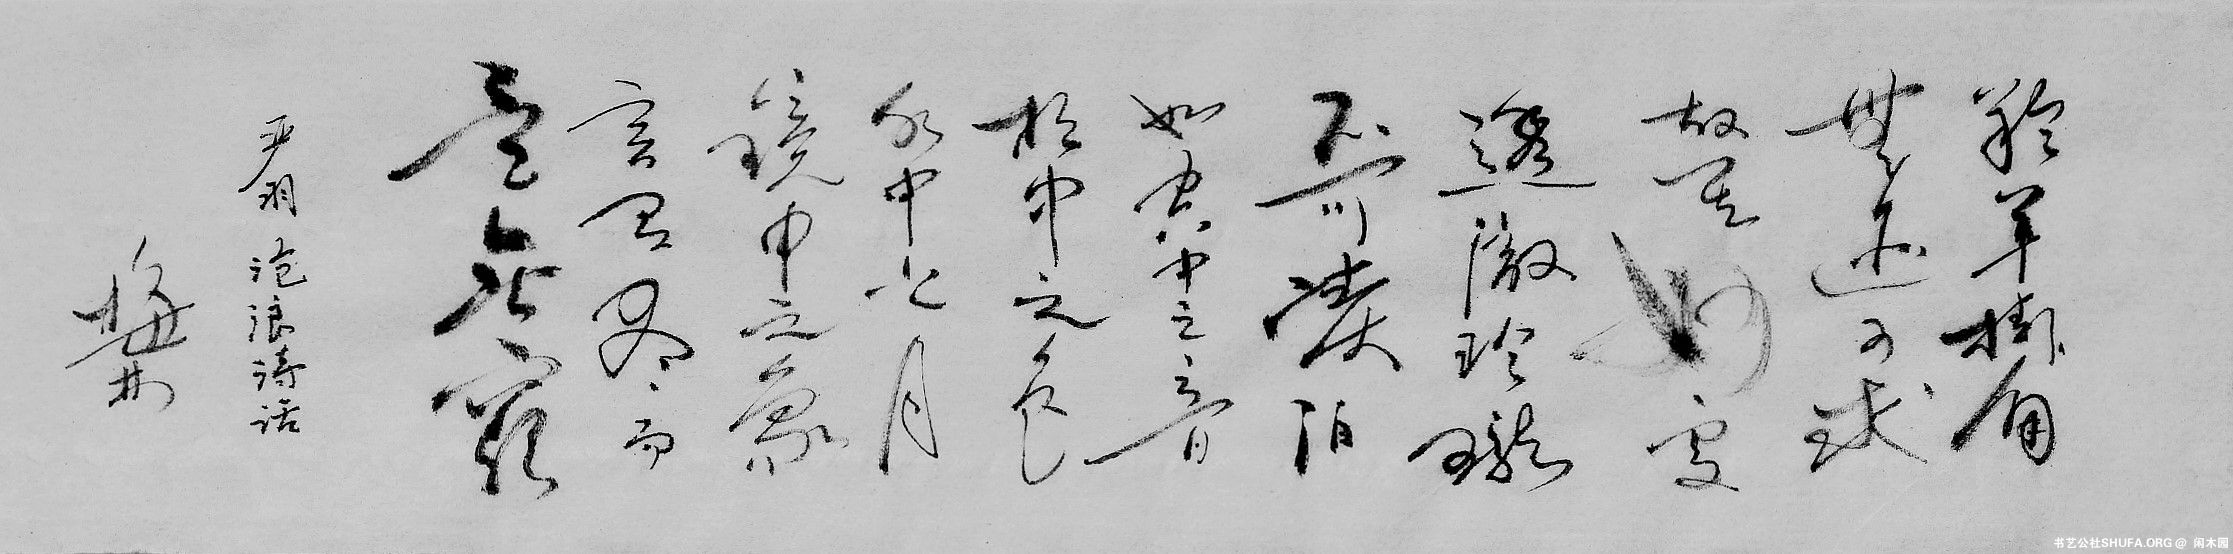 羚羊掛角
無迹可求
故其妙處
透澈玲瓏
不可湊泊
如空中之音
相中之色
水中之月
鏡中之象
言有盡而
意無窮
严羽 沧浪诗话
书艺公社SHUFA.ORG @ 闲木园